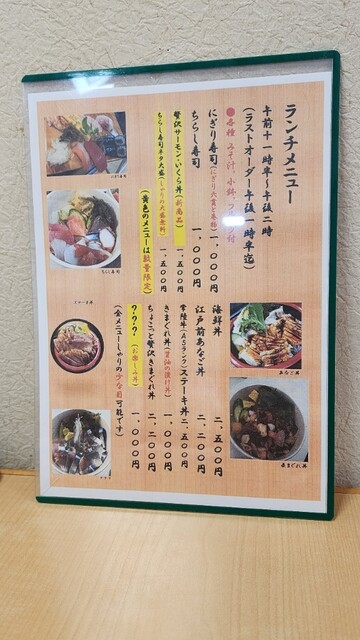 ランチメニュー
午前十一時半~午後二時
(ラストオーダー午後一時半迄)
●各種 みそ汁、小鉢、フルーツ付
にぎり寿司(にぎり六貫と巻物) 一、〇〇〇円
ちらし寿司 一、〇〇〇円
贅沢サーモン・いくら丼(新商品) 一、五〇〇円
ちらし寿司ネタ大盛(しゃりの大盛無料) 一、五〇〇円
(黄色のメニューは数量限定)
海鮮丼 二、五〇〇円
江戸前あなご丼 二、二〇〇円
常陸牛(A5ランク)ステーキ丼 二、五〇〇円
きまぐれ丼(醤油の漬け丼) 一、〇〇〇円
ちょこっと贅沢きまぐれ丼 二、二〇〇円
???(お楽しみ丼) 一、〇〇〇円
(全メニューしゃりの少な目可能です)
にぎり寿司
ちらし寿司
ステーキ丼
あなご丼
きまぐれ丼